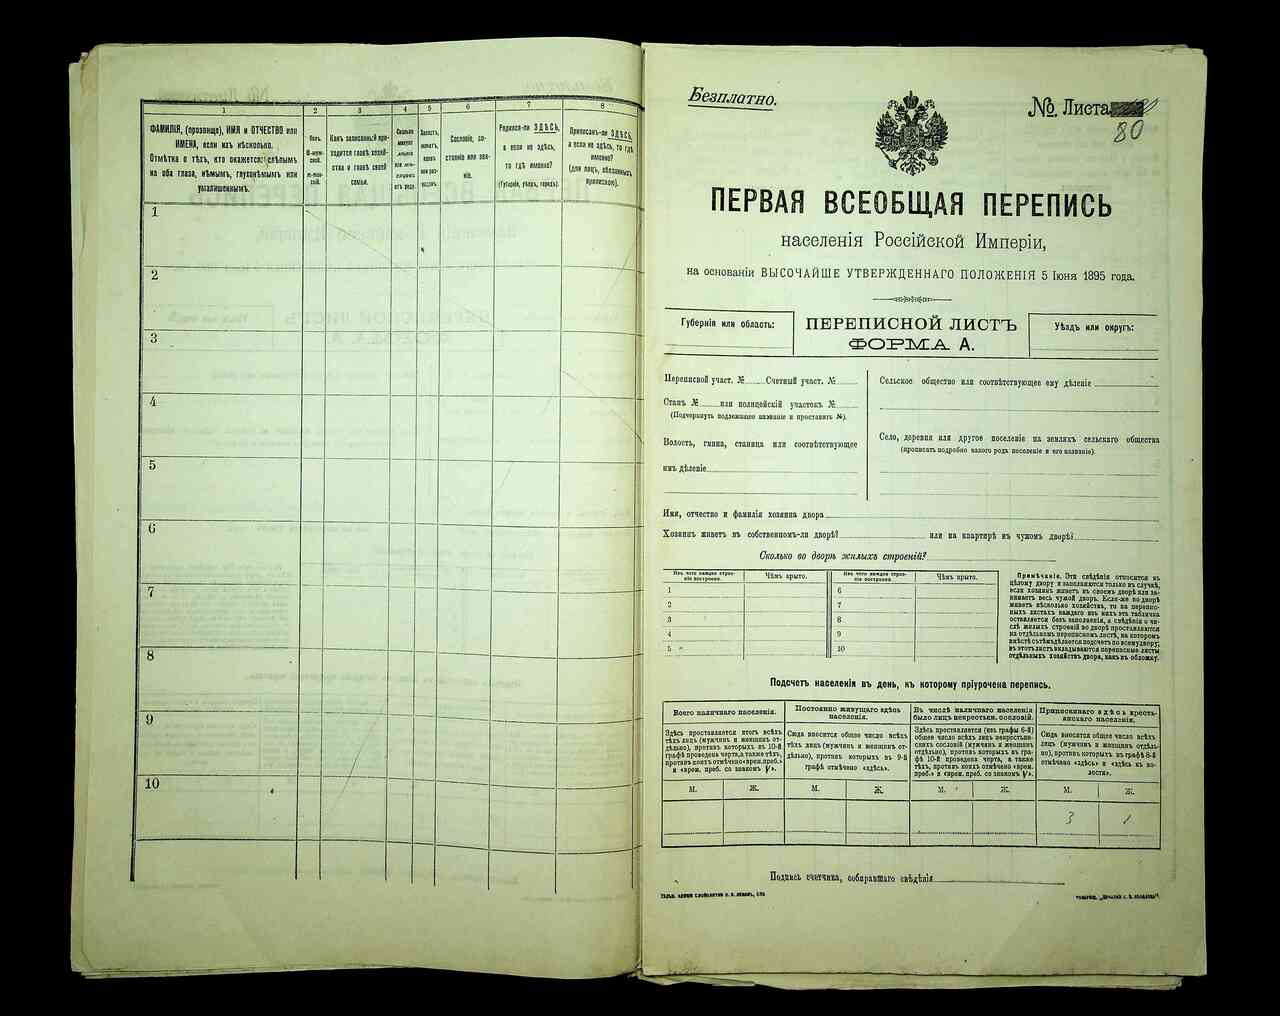 1
2
3
4
5
6
7
8
ФАМИЛІЯ, (прозвище), ИМЯ и ОТЧЕСТВО или
ИМЕНА, если ихъ нѣсколько.
Отмѣтка о тѣхъ, кто окажется: слѣпымъ
на оба глаза, нѣмымъ, глухонѣмымъ или
умалишеннымъ.
Полъ.
М-муж-
ской.
Ж-жен-
скій.
Какъ записанный при-
ходится главѣ хозяй-
ства и главѣ своей
семьи.
Сколько
минуло
лѣтъ
или мѣ-
сяцевъ
отъ роду.
Холостъ,
женатъ,
вдовъ
или раз-
веденъ.
Сословіе, со-
стояніе или зва-
ніе.
Родился-ли ЗДѢСЬ,
а если не здѣсь,
то гдѣ именно?
(Губернія, уѣздъ, городъ).
Приписанъ-ли ЗДѢСЬ,
а если не здѣсь, то гдѣ
именно?
(для лицъ, обязанныхъ
припискою).
1
2
3
4
5
6
7
8
9
10
Безплатно.
№. Листа
80
ПЕРВАЯ ВСЕОБЩАЯ ПЕРЕПИСЬ
населенія Россійской Имперіи,
на основаніи ВЫСОЧАЙШЕ УТВЕРЖДЕННАГО ПОЛОЖЕНІЯ 5 Іюня 1895 года.
Губернія или область:
ПЕРЕПИСНОЙ ЛИСТЪ
ФОРМА А.
Уѣздъ или округъ:
Переписной участ. № Счетный участ. №
Станъ № или полицейскій участокъ №
(Подчеркнуть подлежащее названіе и проставить №).
Волость, гмина, станица или соотвѣтствующее
имъ дѣленіе
Сельское общество или соотвѣтствующее ему дѣленіе
Село, деревня или другое поселеніе на земляхъ сельскаго общества
(прописать подробно какого рода поселеніе и его названіе).
Имя, отчество и фамилія хозяина двора
Хозяинъ живетъ въ собственномъ-ли дворѣ? или на квартирѣ въ чужомъ дворѣ?
Сколько во дворѣ жилыхъ строеній?
Изъ чего каждое строе-
ніе построено.
Чѣмъ крыто.
Изъ чего каждое строе-
ніе построено.
Чѣмъ крыто.
1
2
3
4
5
6
7
8
9
10
Примѣчаніе. Эти свѣдѣнія относятся къ
цѣлому двору и заполняются только въ случаѣ,
если хозяинъ живетъ въ своемъ дворѣ или за-
нимаетъ весь чужой дворъ. Если-же во дворѣ
живетъ нѣсколько хозяйствъ, то на перепис-
ныхъ листахъ каждаго изъ нихъ эта табличка
оставляется безъ заполненія, а свѣдѣнія о чи-
слѣ жилыхъ строеній во дворѣ проставляются
на отдѣльномъ переписномъ листѣ, на которомъ
вмѣстѣ съ тѣмъ дѣлается подсчетъ по всему двору;
въ этотъ листъ вкладываются переписные листы
отдѣльныхъ хозяйствъ двора, какъ въ обложку.
Подсчетъ населенія въ день, къ которому пріурочена перепись.
Всего наличнаго населенія.
Здѣсь проставляется итогъ всѣхъ
тѣхъ лицъ (мужчинъ и женщинъ от-
дѣльно), противъ которыхъ въ 10-й
графѣ проведена черта, а также тѣхъ,
противъ коихъ отмѣчено «врем. преб.»
и «врем. преб. со знакомъ V».
Постоянно живущаго здѣсь
населенія.
Сюда вносится общее число всѣхъ
тѣхъ лицъ (мужчинъ и женщинъ от-
дѣльно), противъ которыхъ въ 9-й
графѣ отмѣчено «здѣсь».
Въ числѣ наличнаго населенія
было лицъ некрестьян. сословій.
Здѣсь проставляется (изъ графы 6-й)
общее число всѣхъ лицъ некрестьян-
скихъ сословій (мужчинъ и женщинъ
отдѣльно), противъ коихъ въ гра-
фѣ 10-й проведена черта, а также
тѣхъ, противъ коихъ отмѣчено «врем.
преб.» и «врем. преб. со знакомъ V».
Приписнаго здѣсь кресть-
янскаго населенія.
Сюда вносится общее число всѣхъ
лицъ (мужчинъ и женщинъ отдѣль-
но), противъ которыхъ въ графѣ 8-й
отмѣчено «здѣсь» и «здѣсь къ во-
лости».
М. Ж. М. Ж. М. Ж. М. Ж.
3 1
Подпись счетчика, собиравшаго свѣдѣнія